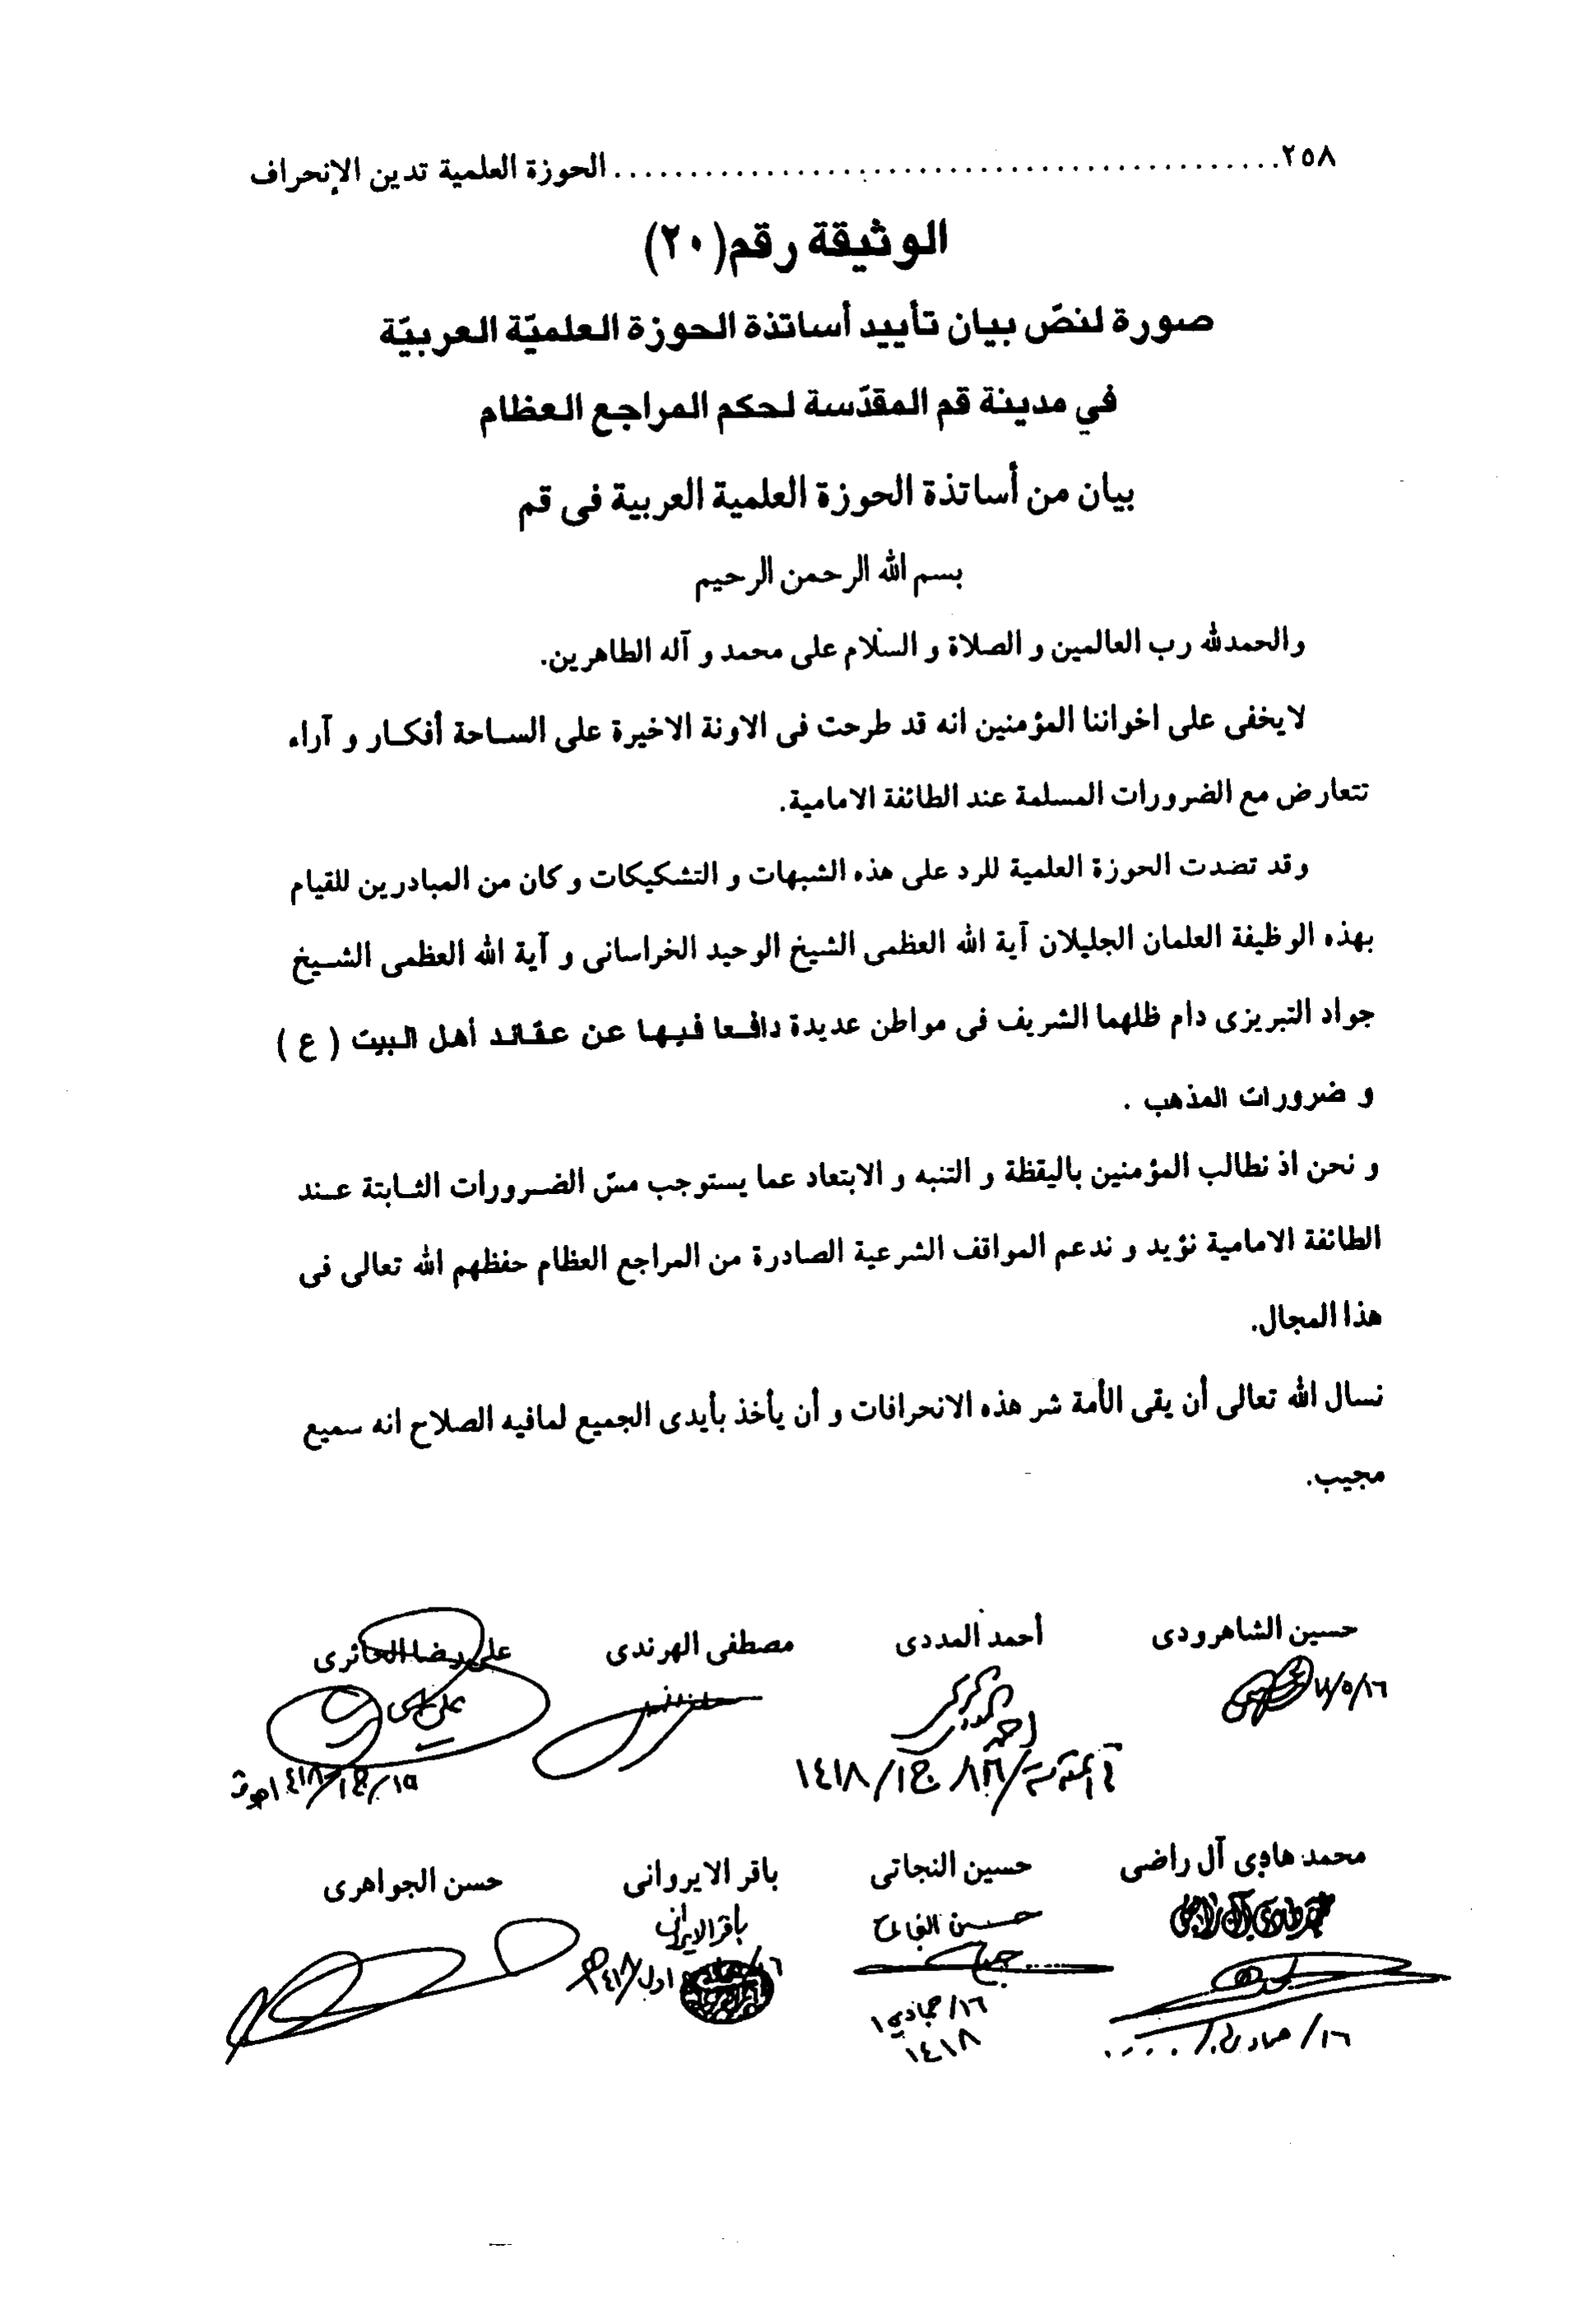 ٢٥٨........................................... الحوزة العلمية تدين الإنحراف
الوثيقة رقم(٢٠)
صورة لنصّ بيان تأييد أساتذة الحوزة العلميّة العربيّة
في مدينة قم المقدّسة لحكم المراجع العظام
بيان من أساتذة الحوزة العلمية العربية فى قم
بسم الله الرحمن الرحيم
والحمدلله رب العالمين و الصلاة و السلام على محمد و آله الطاهرين.
لايخفى على اخواننا المؤمنين انه قد طرحت فى الاونة الاخيرة على الساحة أفكار و آراء
تتعارض مع الضرورات المسلمة عند الطائفة الامامية.
وقد تضدت الحوزة العلمية للرد على هذه الشبهات و التشكيكات و كان من المبادرين للقيام
بهذه الوظيفة العلمان الجليلان آية الله العظمى الشيخ الوحيد الخراسانى و آية الله العظمى الشيخ
جواد التبريزى دام ظلهما الشريف فى مواطن عديدة دافعا فيها عن عقائد أهل البيت ( ع )
و ضرورات المذهب .
و نحن اذ نطالب المؤمنين باليقظة و التنبه و الابتعاد عما يستوجب مسّ الضرورات الثابتة عند
الطائفة الامامية نؤيد و ندعم المواقف الشرعية الصادرة من المراجع العظام حفظهم الله تعالى فى
هذا المجال.
نسال الله تعالى أن يقى الأمة شر هذه الانحرافات و أن يأخذ بأيدى الجميع لمافيه الصلاح انه سميع
مجيب.
حسين الشاهرودى أحمد المددى مصطفى الهرندى على رضا الحائرى
احمد
١٤١٨
محمد هادي آل راضى حسين النجاتى باقر الايروانى حسن الجواهرى
باقر الايرواني
١٦/ جمادي ١
١٤١٨